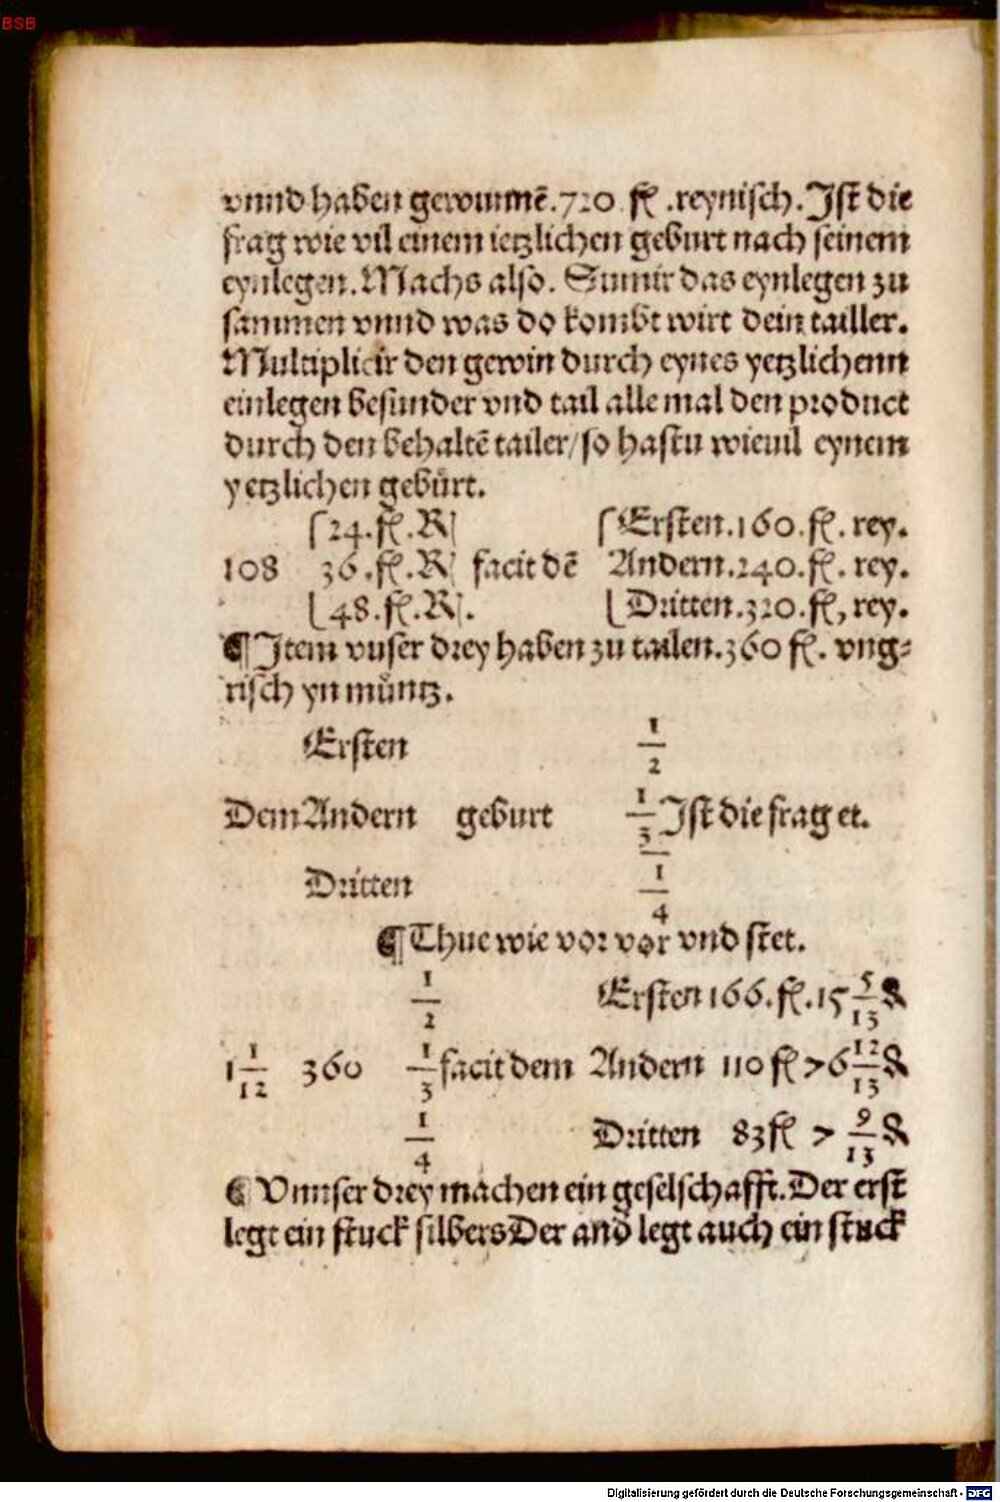 BSB
vnnd haben gewunnē.720 fl .reynisch.Ist die
frag wie vil einem ietzlichen geburt nach seinem
eynlegen.Machs also. Sumir das eynlegen zu
sammen vnnd was do kombt wirt dein tailler.
Multiplicir den gewin durch eynes yetzlichenn
einlegen besunder vnd tail alle mal den product
durch den behaltē tailer/so hastu wieuil eynem
yetzlichen gebürt.
24.fl.R Ersten.160.fl. rey.
108 36.fl.R facit dē Andern.240.fl. rey.
48.fl.R. Dritten.320.fl, rey.
¶Item vnser drey haben zu tailen.360 fl. vng⸗
risch yn müntz.
Ersten 1/2
Dem Andern geburt 1/3 Ist die frag et.
Dritten 1/4
¶Thue wie vor vor vnd stet.
1/2 Ersten 166.fl.15 5/13 ₰
1 1/12 360 1/3 facit dem Andern 110 fl 76 12/13 ₰
1/4 Dritten 83 fl 7 9/13 ₰
¶Vnnser drey machen ein geselschafft.Der erst
legt ein stuck silbers Der and̄ legt auch ein stuck
Digitalisierung gefördert durch die Deutsche Forschungsgemeinschaft - DFG